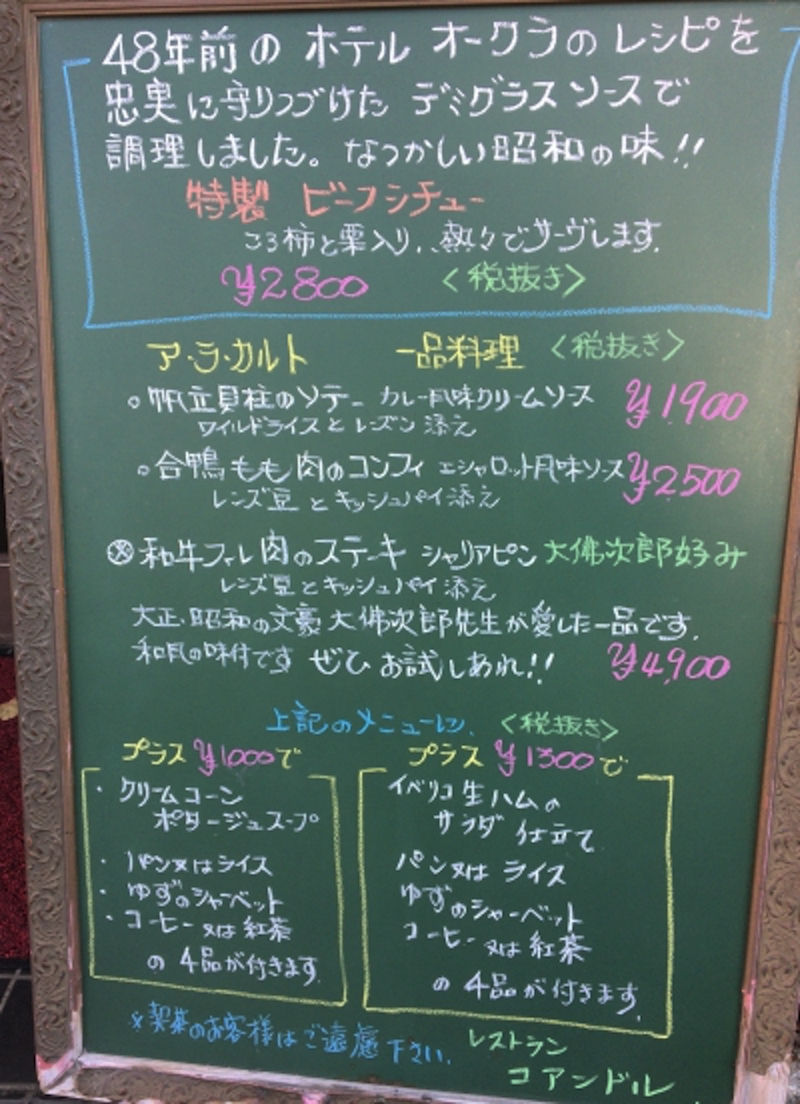 48年前の ホテル オークラの レシピを
忠実に守りつづけた デミグラスソースで
調理しました。なつかしい昭和の味!!
特製 ビーフシチュー
ころ柿と栗入り、熱々でサーヴします。
¥2800 〈税抜き〉
ア・ラ・カルト 一品料理 〈税抜き〉
○帆立貝柱のソテー カレー風味クリームソース ¥1,900
ワイルドライスとレーズン添え
○合鴨もも肉のコンフィ エシャロット風味ソース ¥2,500
レンズ豆とキッシュパイ添え
和牛フィレ肉のステーキ シャリアピン 大佛次郎好み
レンズ豆とキッシュパイ添え
大正・昭和の文豪 大佛次郎先生が愛した一品です。
和風の味付です ぜひお試しあれ!! ¥4,900
上記のメニューに、〈税抜き〉
プラス ¥1000で
・クリームコーン
ポタージュスープ
・パン又はライス
・ゆずのシャーベット
・コーヒー又は紅茶
の 4品が付きます
プラス ¥1300で
イベリコ生ハムの
サラダ 仕立て
パン又は ライス
ゆずのシャーベット
コーヒー又は紅茶
の 4品が付きます。
※喫茶のお客様はご遠慮下さい。
レストラン
コアンドル